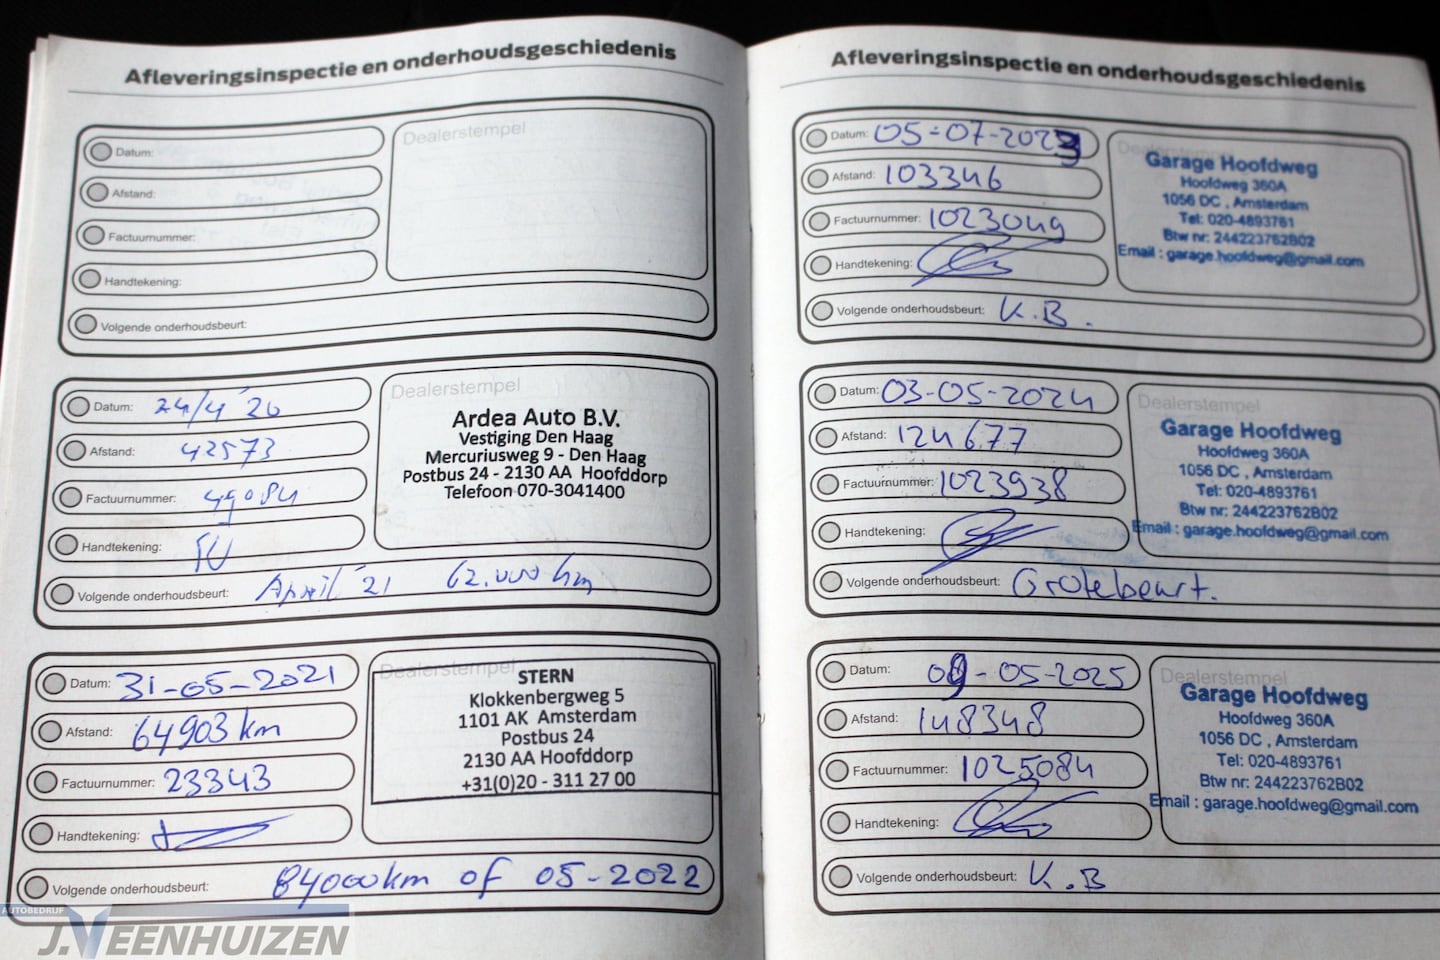 Afleveringsinspectie en onderhoudsgeschiedenis
Datum:
Afstand:
Factuurnummer:
Handtekening:
Volgende onderhoudsbeurt:
Dealerstempel
Datum: 24/4 '20
Afstand: 42573
Factuurnummer: 49084
Handtekening:
Volgende onderhoudsbeurt: April '21 62.000 km
Dealerstempel
Ardea Auto B.V.
Vestiging Den Haag
Mercuriusweg 9 - Den Haag
Postbus 24 - 2130 AA Hoofddorp
Telefoon 070-3041400
Datum: 31-05-2021
Afstand: 64903 km
Factuurnummer: 23343
Handtekening:
Volgende onderhoudsbeurt: 84000km of 05-2022
Dealerstempel
STERN
Klokkenbergweg 5
1101 AK Amsterdam
Postbus 24
2130 AA Hoofddorp
+31(0)20 - 311 27 00
Afleveringsinspectie en onderhoudsgeschiedenis
Datum: 05-07-2023
Afstand: 103346
Factuurnummer: 1023049
Handtekening:
Volgende onderhoudsbeurt: K.B.
Dealerstempel
Garage Hoofdweg
Hoofdweg 360A
1056 DC , Amsterdam
Tel: 020-4893761
Btw nr: 244223762B02
Email : garage.hoofdweg@gmail.com
Datum: 03-05-2024
Afstand: 124677
Factuurnummer: 1023938
Handtekening:
Volgende onderhoudsbeurt: Grotebeurt.
Dealerstempel
Garage Hoofdweg
Hoofdweg 360A
1056 DC , Amsterdam
Tel: 020-4893761
Btw nr: 244223762B02
Email : garage.hoofdweg@gmail.com
Datum: 09-05-2025
Afstand: 148348
Factuurnummer: 1025084
Handtekening:
Volgende onderhoudsbeurt: K.B
Dealerstempel
Garage Hoofdweg
Hoofdweg 360A
1056 DC , Amsterdam
Tel: 020-4893761
Btw nr: 244223762B02
Email : garage.hoofdweg@gmail.com
AUTOBEDRIJF
J.VEENHUIZEN